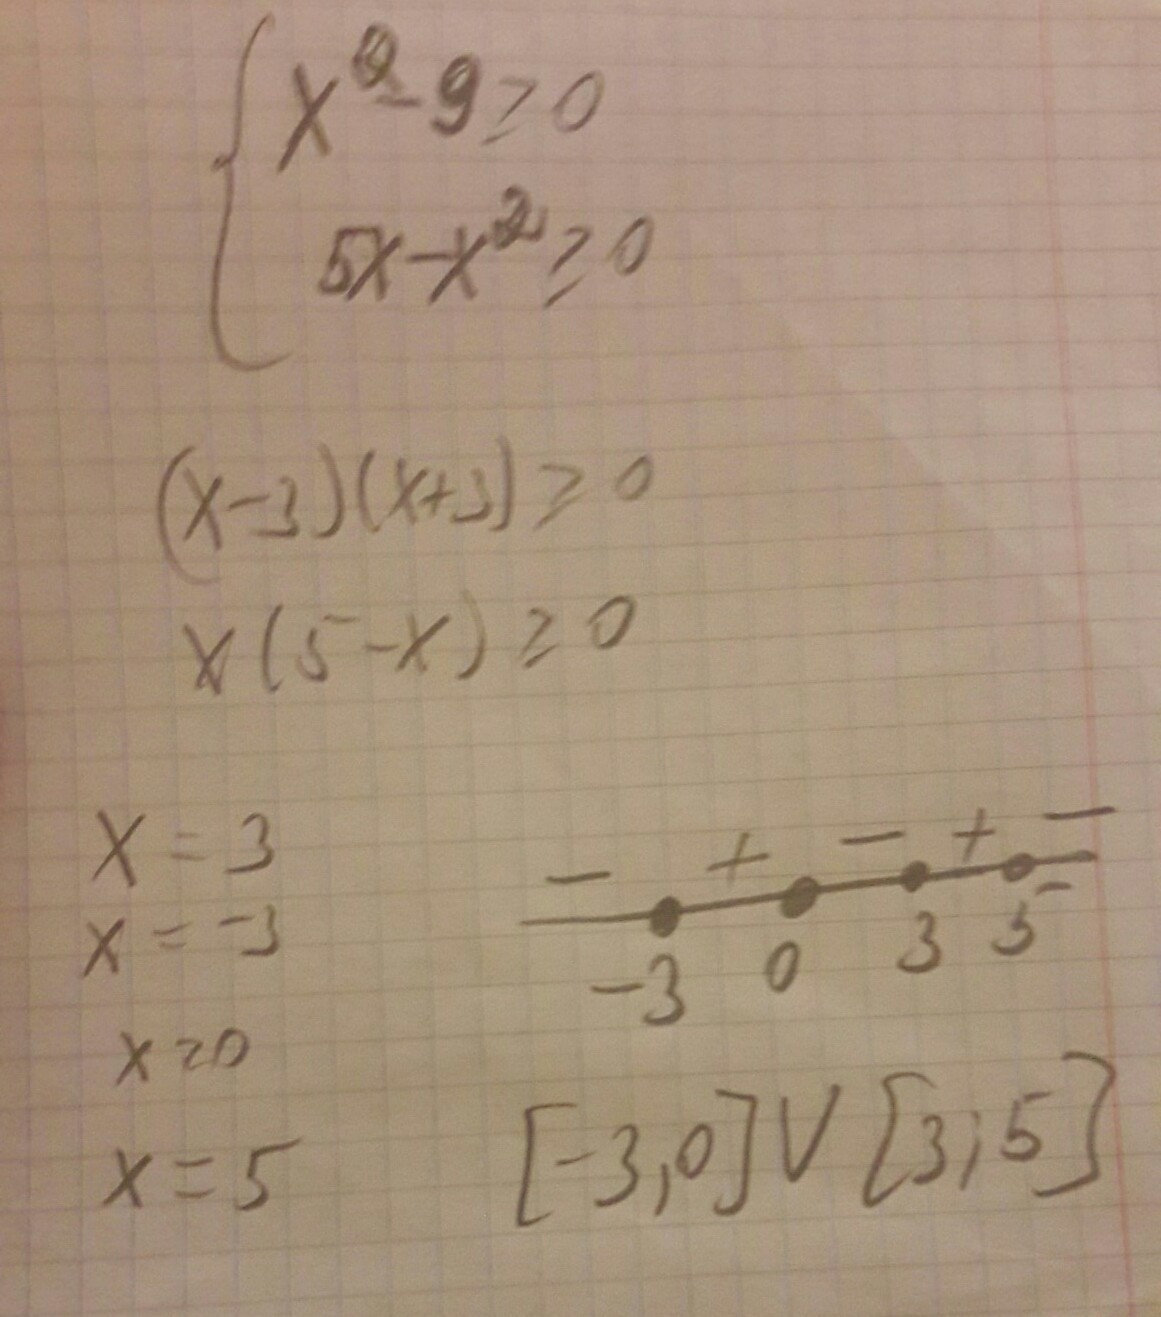 x² - 9 ≥ 0
5x - x² ≥ 0
(x-3)(x+3) ≥ 0
x(5-x) ≥ 0
x = 3
x = -3
x = 0
x = 5
- + - + -
-3 0 3 5
[-3,0] V [3;5]